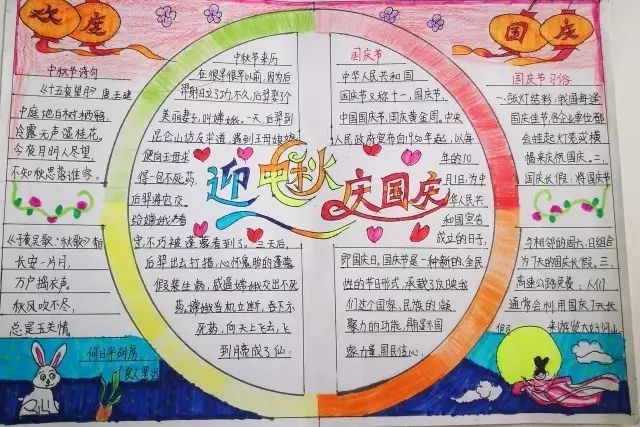 欢度
国庆
中秋节诗句
《十五夜望月》 唐 王建
中庭地白树栖鸦,
冷露无声湿桂花。
今夜月明人尽望,
不知秋思落谁家。
《子夜吴歌·秋歌》
长安一片月,
万户捣衣声。
秋风吹不尽,
总是玉关情。
何日平胡虏,
良人罢远
中秋节来历
在很早很早以前,因为后
羿射日立了功,不久,后羿娶了个
美丽妻子,叫嫦娥。一天,后羿到
昆仑山访友求道,遇到王母娘娘
便向王母求
得一包不死药。
后羿将它交
给嫦娥
不巧被蓬蒙看到了。三天后,
后羿出去打措,心怀鬼胎的蓬蒙
假装生病,威逼嫦娥交出不死
药,嫦娥当机立断,吞下不
死药,向天上飞去,飞
到月
成了仙。
迎中秋
庆国庆
国庆节
中华人民共和国
国庆节又称十一、国庆节、
中国国庆节、国庆黄金周。中央
人民政府宣布自1950年起,以每
年的10
月1日,为中
华人民共
和国宣告
成立的日子,
即国庆日。国庆节是一种新的、全民
性的节日形式,承载了反映我
们这个国家、民族的凝
聚力的功能,
力量,国民信心,
国庆节习俗
一、张灯结彩:我国每逢
国庆佳节,各企业单位都
会挂起灯笼或横
幅来庆祝国庆。二、
国庆长假:将国庆节
与相邻的周六、日组合
为7天的国庆长假。三、
高速公路免费:人们
通常会利用国庆7天长
假
来游览大好河山